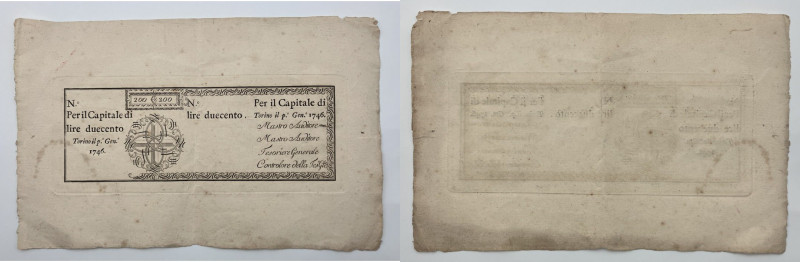 200 200
N.º
Per il Capitale di
lire duecento
Torino il pº. Genº.
1746.
N.º
Per il Capitale di
lire duecento.
Torino il pº. Genº. 1746.
Mastro Auditore
Mastro Auditore
Tesoriere Generale
Controlore della